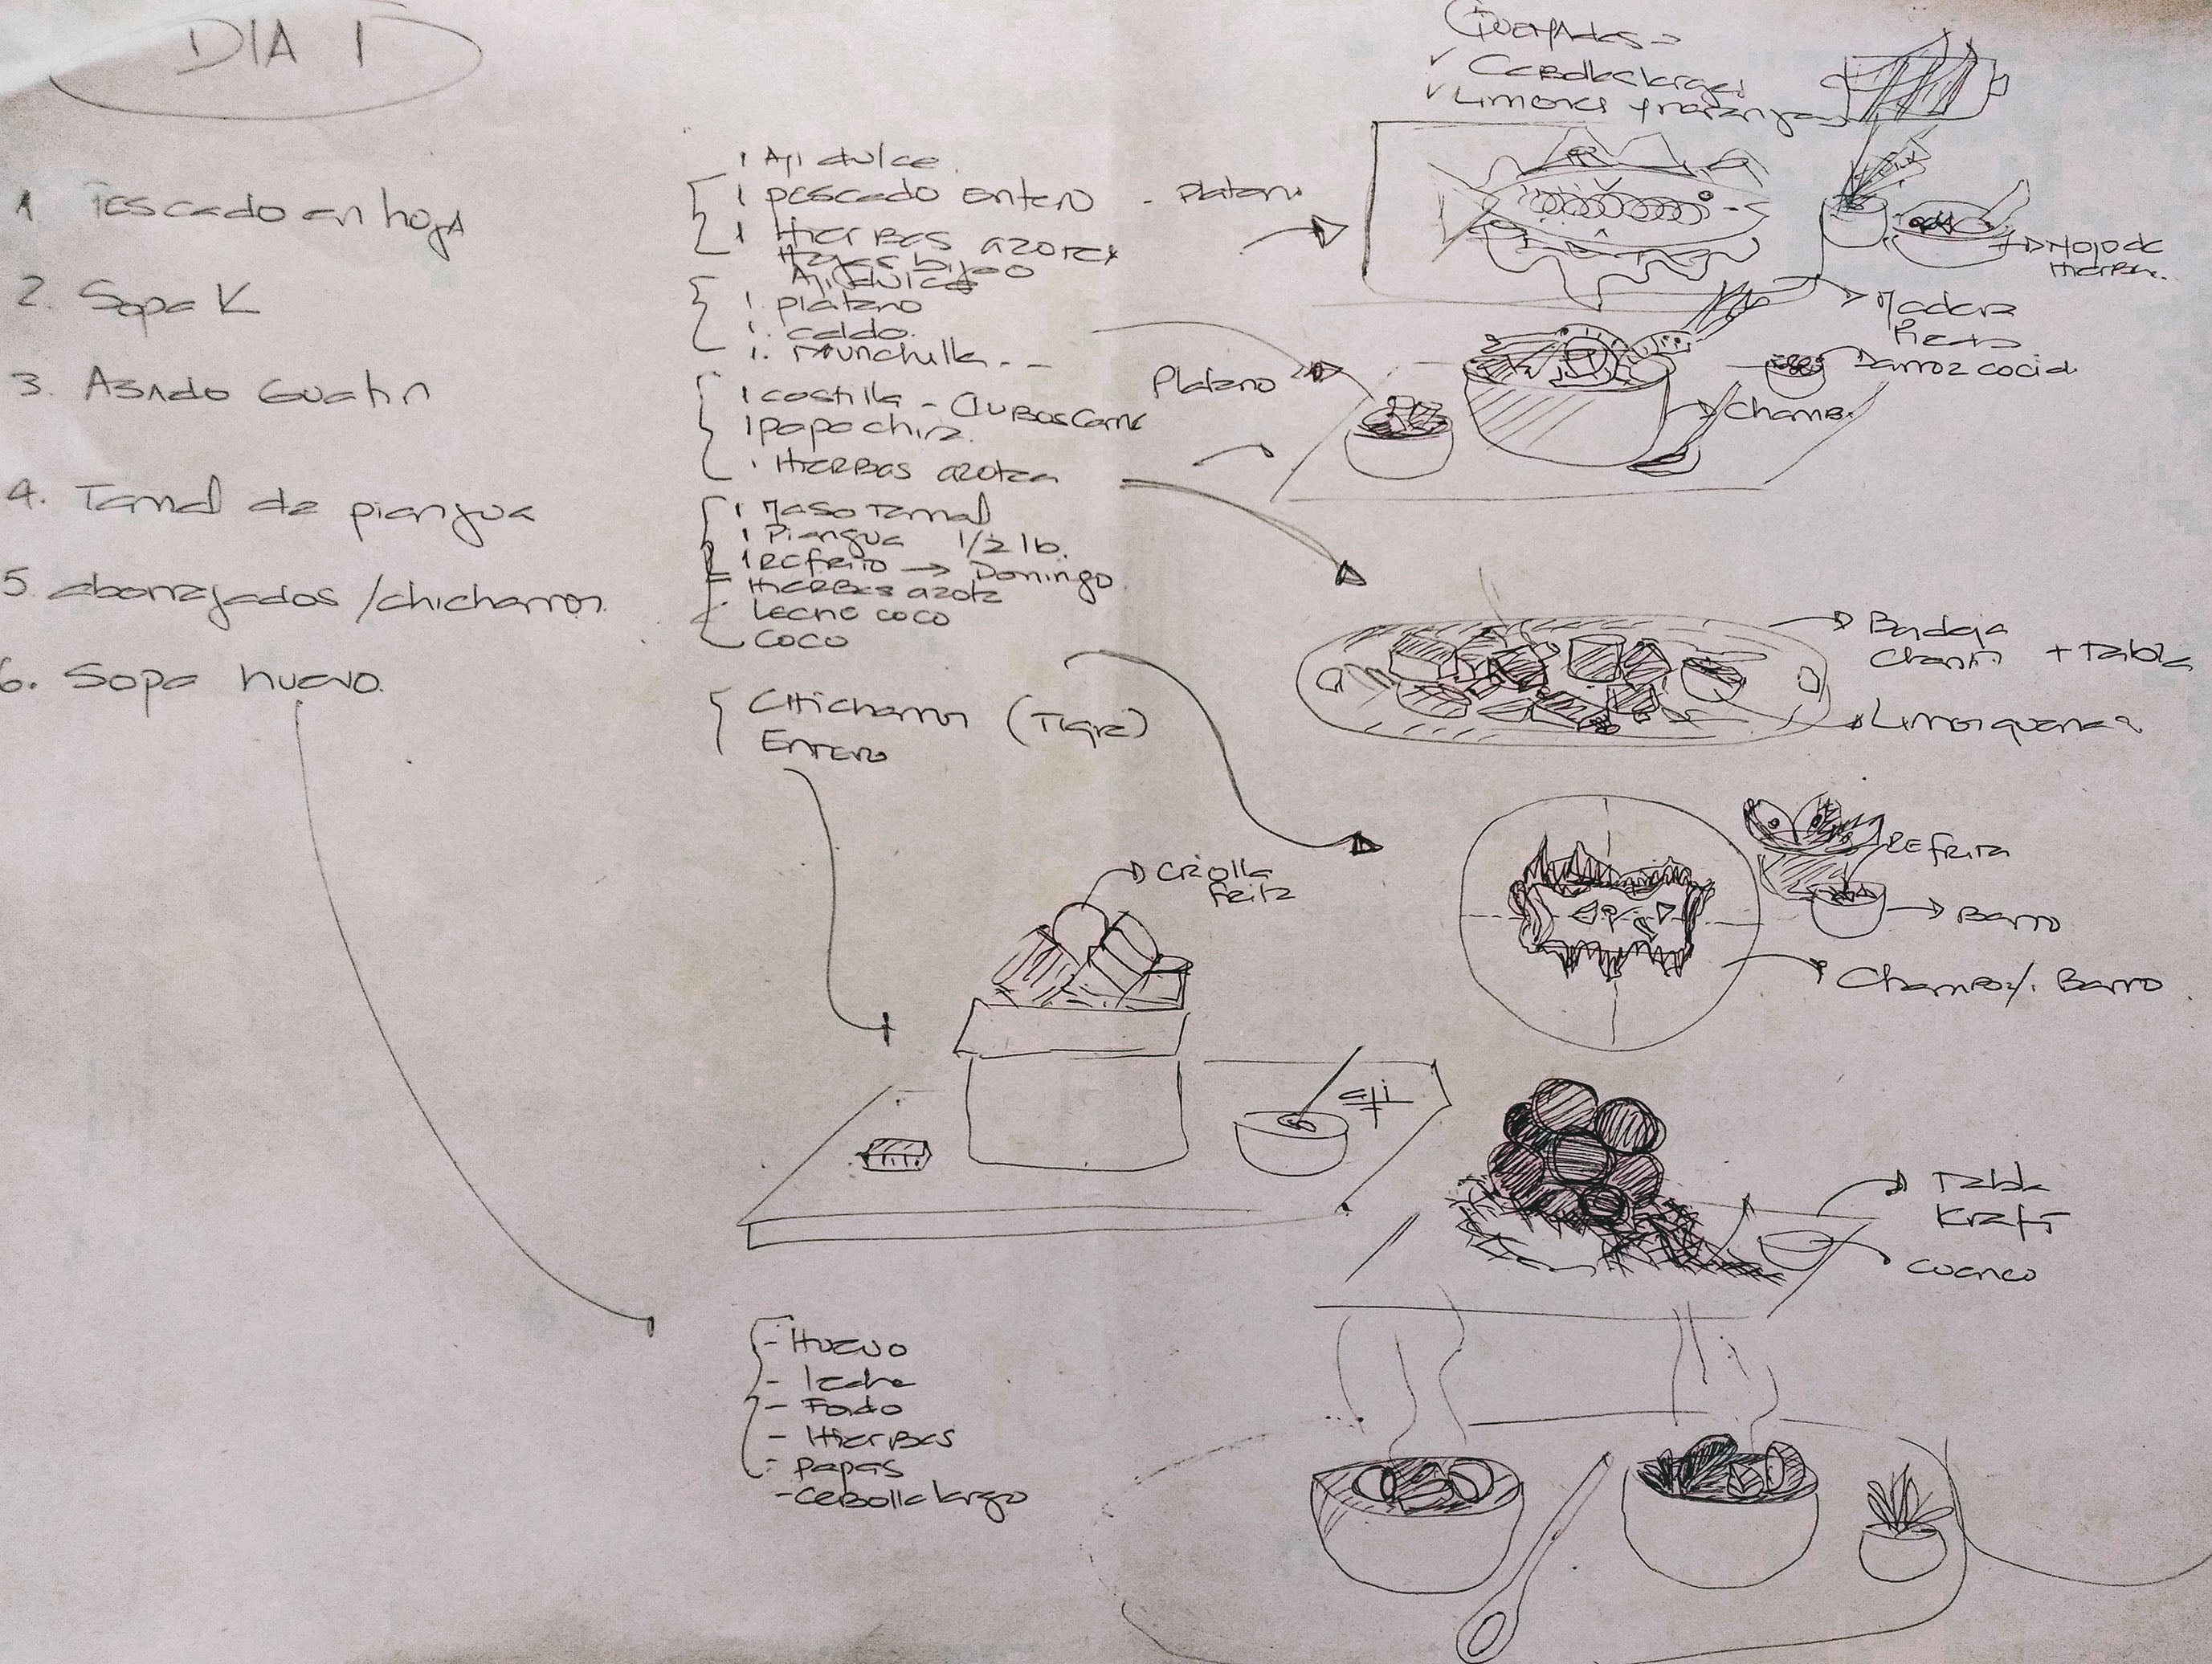 DIA 1
1 Pescado en hoja
2. Sopa K
3. Asado
4. Tamal de piangua
5 aborrajados /chicharron
6. Sopa huevo.
1 Aji dulce.
1 pescado entero - Platano
1 Hierbas azotea
Hojas bijao
Aji dulce
1. platano
1. caldo.
1.
Platano
1 costilla - Cubos carne
1 papa china.
1 Hierbas azotea
1 Masa Tamal
1 Piangua 1/2 lb.
1 Refrito → Domingo
Hierbas azotea
Leche coco
coco
Chicharron (Tigre)
Entero
- Huevo
- leche
- Fondo
- Hierbas
- papas
- cebolla larga
Quemados
✓ Cebolla larga
✓ Limones y naranja
Mojo de
Hierbas.
Madera
arroz cocido
Chamba
Bandeja
Chamba + Tabla
Refrito
Barro
Chamba / Barro
Criolla
frita
aji
Tabla
Kraft
cuenco